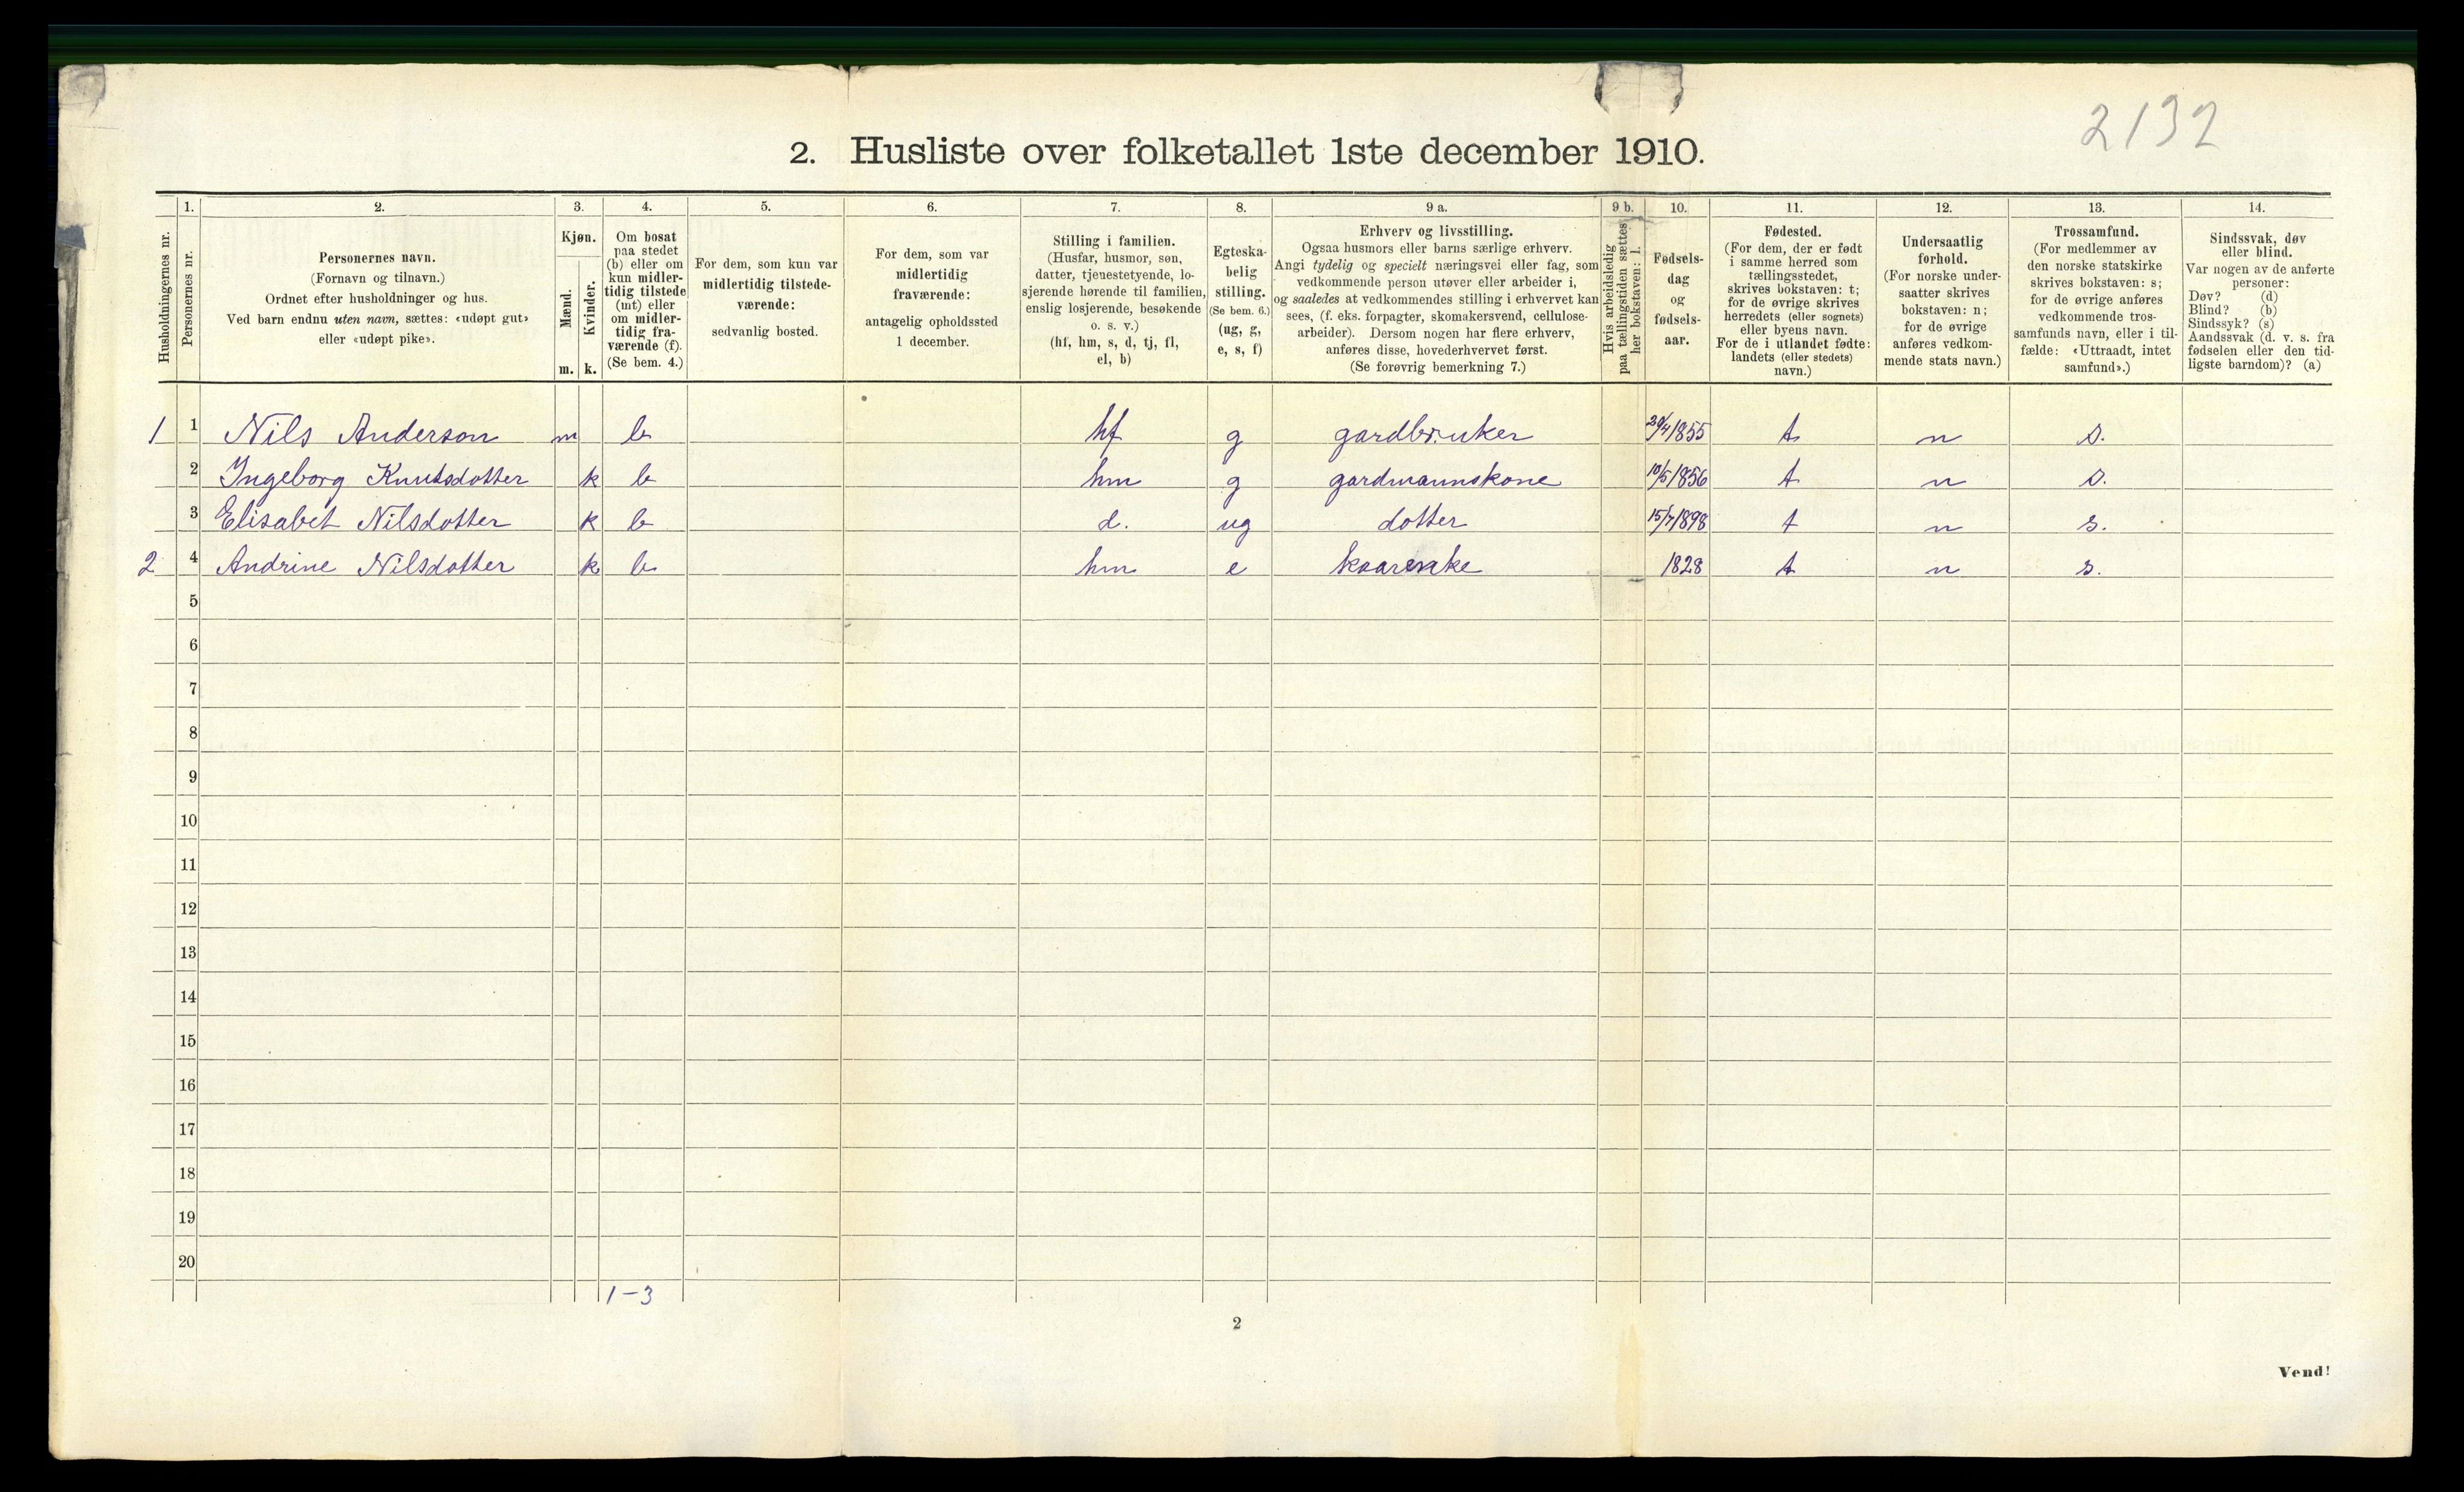 2132
2. Husliste over folketallet 1ste december 1910.
1. 2. 3. 4. 5. 6. 7. 8. 9 a. 9 b. 10. 11. 12. 13. 14.
Husholdningernes nr.
Personernes nr.
Personernes navn.
(Fornavn og tilnavn.)
Ordnet efter husholdninger og hus.
Ved barn endnu uten navn, sættes: «udøpt gut»
eller «udøpt pike».
Kjøn.
Mænd.
Kvinder.
m. k.
Om bosat
paa stedet
(b) eller om
kun midler-
tidig tilstede
(mt) eller
om midler-
tidig fra-
værende (f).
(Se bem. 4.)
For dem, som kun var
midlertidig tilstede-
værende:
sedvanlig bosted.
For dem, som var
midlertidig
fraværende:
antagelig opholdssted
1 december.
Stilling i familien.
(Husfar, husmor, søn,
datter, tjenestetyende, lo-
sjerende hørende til familien,
enslig losjerende, besøkende
o. s. v.)
(hf, hm, s, d, tj, fl,
el, b)
Egteska-
belig
stilling.
(Se bem. 6.)
(ug, g,
e, s, f)
Erhverv og livsstilling.
Ogsaa husmors eller barns særlige erhverv.
Angi tydelig og specielt næringsvei eller fag, som
vedkommende person utøver eller arbeider i,
og saaledes at vedkommendes stilling i erhvervet kan
sees, (f. eks. forpagter, skomakersvend, cellulose-
arbeider). Dersom nogen har flere erhverv,
anføres disse, hovederhvervet først.
(Se forøvrig bemerkning 7.)
Hvis arbeidsledig
paa tællingstiden sættes
her bokstaven: l.
Fødsels-
dag
og
fødsels-
aar.
Fødested.
(For dem, der er født
i samme herred som
tællingsstedet,
skrives bokstaven: t;
for de øvrige skrives
herredets (eller sognets)
eller byens navn.
For de i utlandet fødte:
landets (eller stedets)
navn.)
Undersaatlig
forhold.
(For norske under-
saatter skrives
bokstaven: n;
for de øvrige
anføres vedkom-
mende stats navn.)
Trossamfund.
(For medlemmer av
den norske statskirke
skrives bokstaven: s;
for de øvrige anføres
vedkommende tros-
samfunds navn, eller i til-
fælde: «Uttraadt, intet
samfund».)
Sindssvak, døv
eller blind.
Var nogen av de anførte
personer:
Døv? (d)
Blind? (b)
Sindssyk? (s)
Aandssvak (d. v. s. fra
fødselen eller den tid-
ligste barndom)? (a)
1 1 Nils Anderson m b hf g gardbruker 1855 t n s.
2 Ingeborg Knutsdotter k b hm g gardmannskone 10/5 1856 t n s.
3 Elisabet Nilsdotter k b d. ug dotter 15/7 1898 t n s.
2 4 Andrine Nilsdotter k b hm e kaarenke 1828 t n s.
5
6
7
8
9
10
11
12
13
14
15
16
17
18
19
20
1-3
2
Vend!